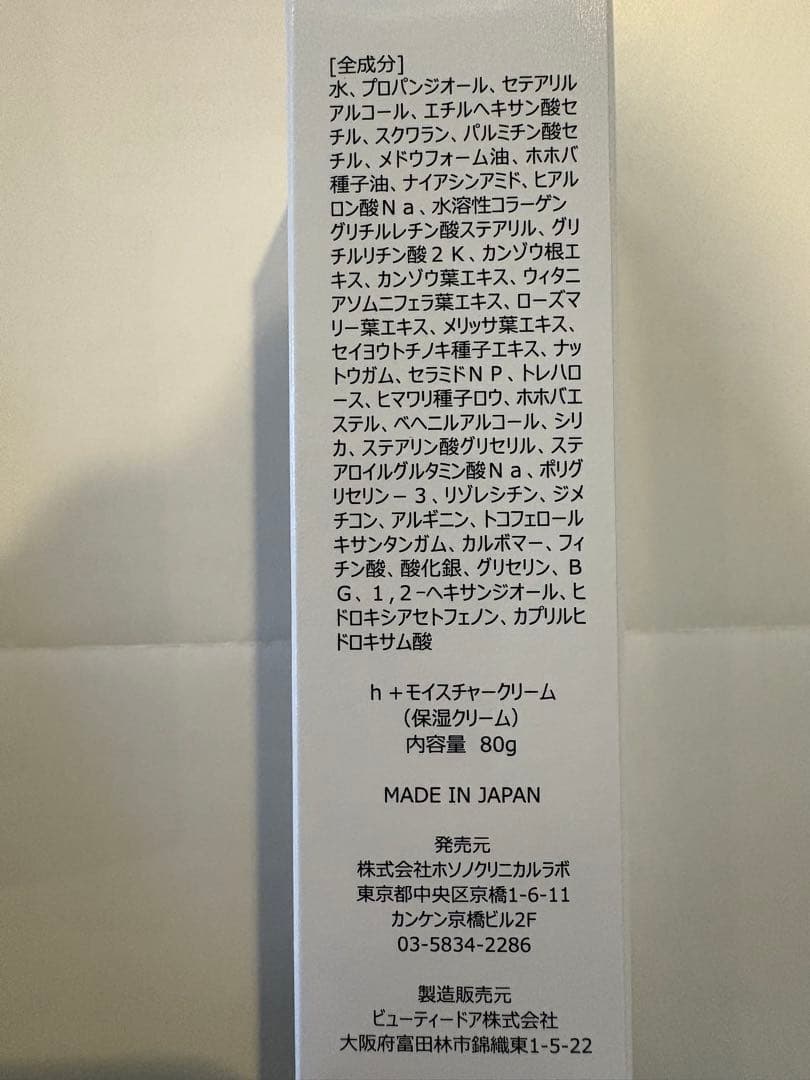 [全成分]
水、プロパンジオール、セテアリル
アルコール、エチルヘキサン酸セ
チル、スクワラン、パルミチン酸セ
チル、メドウフォーム油、ホホバ
種子油、ナイアシンアミド、ヒアル
ロン酸Ｎａ、水溶性コラーゲン
グリチルレチン酸ステアリル、グリ
チルリチン酸２Ｋ、カンゾウ根エ
キス、カンゾウ葉エキス、ウィタニ
アソムニフェラ葉エキス、ローズマ
リー葉エキス、メリッサ葉エキス、
セイヨウトチノキ種子エキス、ナッ
トウガム、セラミドＮＰ、トレハロ
ース、ヒマワリ種子ロウ、ホホバエ
ステル、ベヘニルアルコール、シリ
カ、ステアリン酸グリセリル、ステ
アロイルグルタミン酸Ｎａ、ポリグ
リセリン－３、リゾレシチン、ジメ
チコン、アルギニン、トコフェロール
キサンタンガム、カルボマー、フィ
チン酸、酸化銀、グリセリン、Ｂ
Ｇ、１,２-ヘキサンジオール、ヒ
ドロキシアセトフェノン、カプリルヒ
ドロキサム酸
ｈ＋モイスチャークリーム
（保湿クリーム）
内容量 80g
MADE IN JAPAN
発売元
株式会社ホソノクリニカルラボ
東京都中央区京橋1-6-11
カンケン京橋ビル2F
03-5834-2286
製造販売元
ビューティードア株式会社
大阪府富田林市錦織東1-5-22